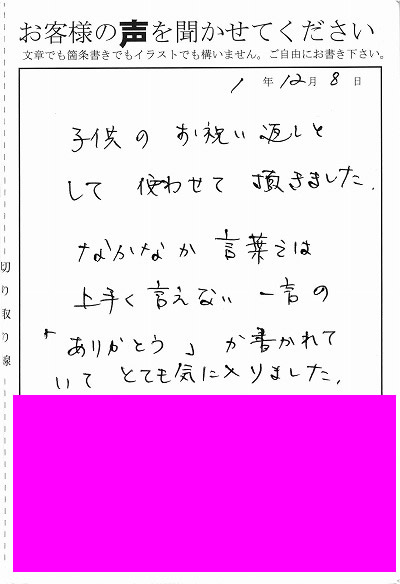 お客様の声を聞かせてください
文章でも箇条書きでもイラストでも構いません。ご自由にお書き下さい。
1年12月8日
子供のお祝い返しと
して使わせて頂きました.
なかなか言葉では
上手く言えない一言の
「ありがとう」が書かれて
いてとても気に入りました.
切り取り線